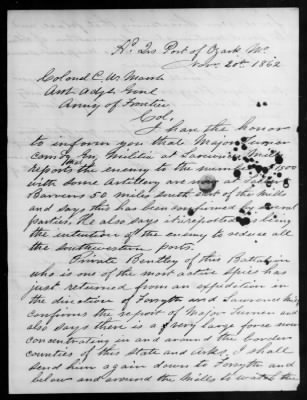 Hd. Qrs Post of Ozark Mo.
Nov. 20th 1862
Colonel C. W. Marsh
Asst Adgt Genl
Army of Frontier
Col;
I have the honor
to inform you that Major Turner
comdg Mo. Militia at Lawrence Mill
reports the enemy to the num
with some Artillery are
Barrens 50 miles south of the Mills
and says this has been confirmed by several
parties, He also says it is reported as being
the intention of the enemy to reduce all
the southwestern posts.
Private Bentley of this Battalion
who is one of the most active spies has
just returned from an expedition in
the direction of Forsyth and Lawrence Mill
confirms the report of Major Turner and
also says there is a very large force now
concentrating in and around the border
counties of this State and Arks, I shall
send him again down to Forsyth and
below and around the Mills to watch the